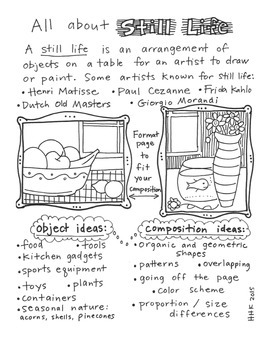 All about Still Life
A still life is an arrangement of
objects on a table for an artist to draw
or paint. Some artists known for still life:
• Henri Matisse • Paul Cezanne • Frida Kahlo
• Dutch Old Masters • Giorgio Morandi
Format
page to
fit
your
composition
object ideas:
• food • tools
• kitchen gadgets
• sports equipment
• toys • plants
• containers
• seasonal nature:
acorns, shells, pinecones
Composition ideas:
• Organic and geometric
shapes
• patterns • overlapping
• going off the page
• color scheme
• proportion / size
differences
HHK 2015